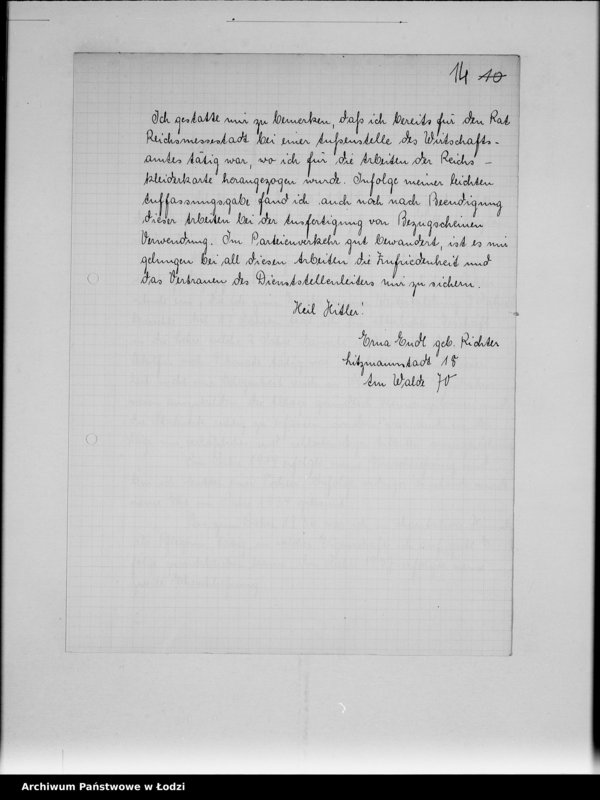 14 10
Ich gestatte mir zu bemerken, daß ich bereits für den Rat
Reichsmessestadt bei einer Außenstelle des Wirtschafts-
amtes tätig war, wo ich für die Arbeiten der Reichs-
kleiderkarte herangezogen wurde. Infolge meiner leichten
Auffassungsgabe fand ich auch noch nach Beendigung
dieser Arbeiten bei der Ausfertigung von Bezugscheinen
Verwendung. Im Parteienverkehr gut bewandert, ist es mir
gelungen bei all diesen Arbeiten die Zufriedenheit und
das Vertrauen des Dienststellenleiters mir zu sichern.
Heil Hitler!
Erna Endl geb. Richter
Litzmannstadt 18
Am Walde 70
Archiwum Państwowe w Łodzi